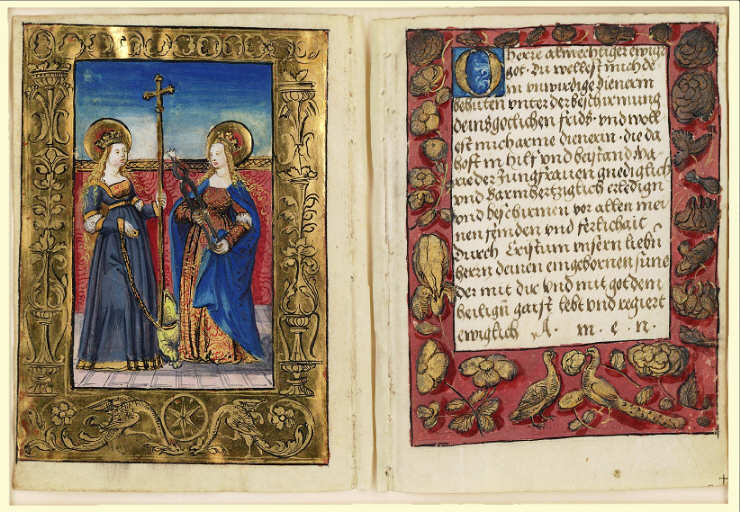 O herre almechtiger ewiger
got · Du wellest mich de
in vnwirdige dienerin
behüten vnter der beschirmung
deins gotlichen frids · vnd woll
est mich arme dienerin · die da
hoft in hilf vnd beystand Ma
rie der Jungfrauen gnediglich
vnd Barmhertziglich erledign
vnd beschirmen vor allen mei
nen feinden vnd ferlichait
durch Cristum vnsern liebn
hern deinen eingebornen sune
der mit dir vnd mit got dem
heilign gaist lebt vnd regiert
ewiglich A · m · e · n ·